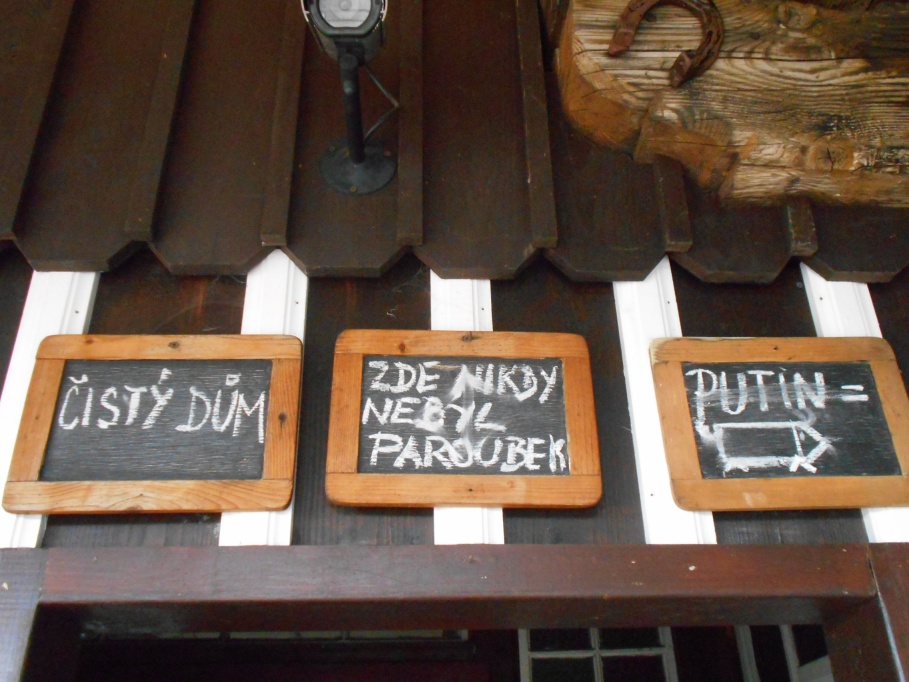 ČISTÝ DŮM
ZDE NIKDY
NEBYL
PAROUBEK
PUTIN =